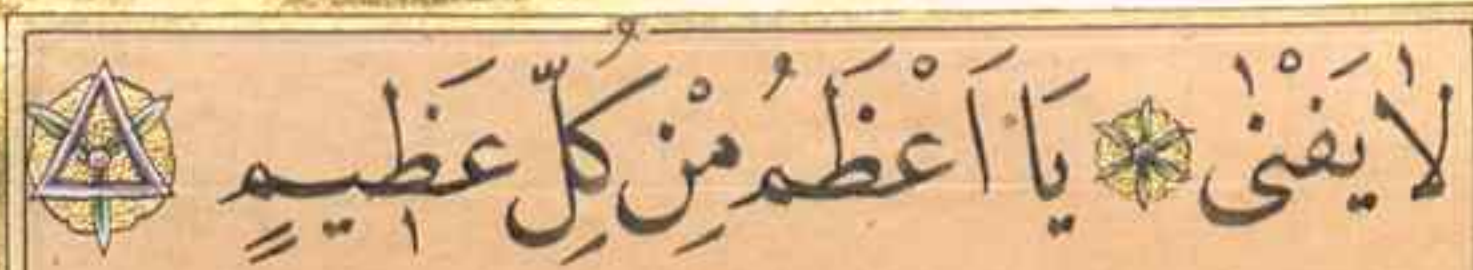 لَا يَفْنٰى يَا اَعْظَمُ مِنْ كُلِّ عَظِيمٍ